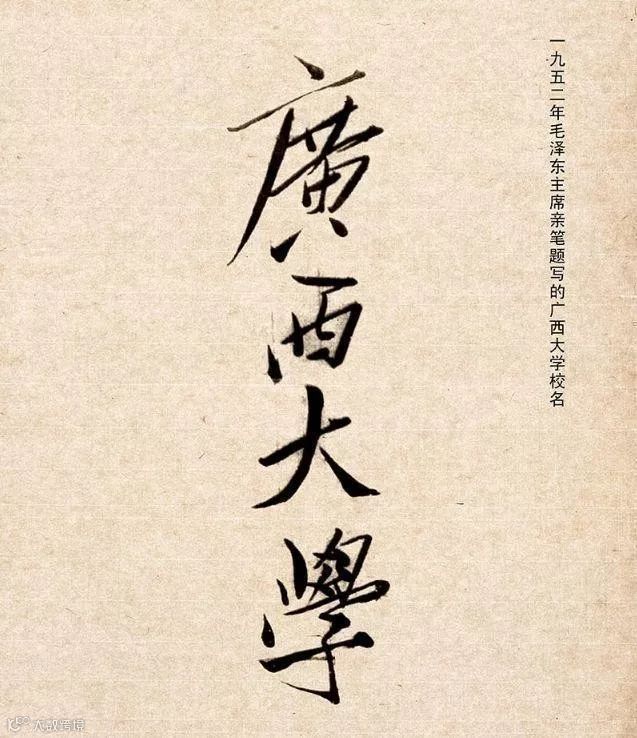 一九五二年毛泽东主席亲笔题写的广西大学校名
廣西大學
大数跨境